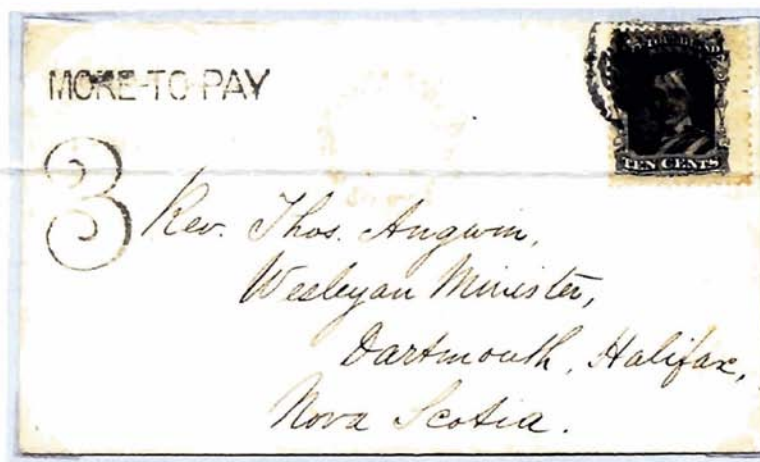 MORE-TO PAY
TEN CENTS
3
Rev. Thos. Angwin,
Wesleyan Minister,
Dartmouth, Halifax,
Nova Scotia.